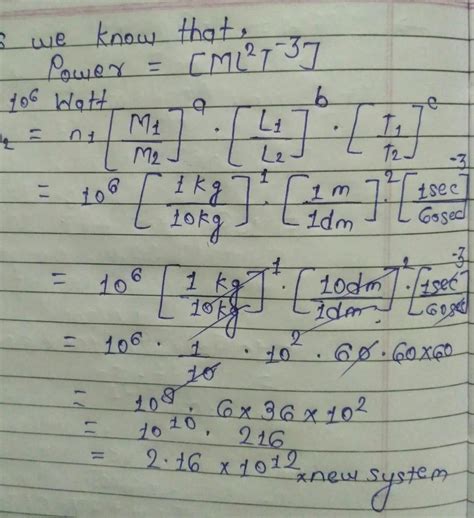 s we know that,
Power = [ML²T⁻³]
10⁶ Watt
₂ = n₁ [M₁/M₂]ᵃ · [L₁/L₂]ᵇ · [T₁/T₂]ᶜ
= 10⁶ [1 kg/10kg]¹ · [1 m/1dm]² · [1sec/60sec]⁻³
= 10⁶ [1 kg/10kg]¹ · [10dm/1dm]² · [1sec/60sec]⁻³
= 10⁶ · 1/10 · 10² · 60 · 60×60
= 10⁸ · 6 × 36 × 10²
= 10¹⁰ · 216
= 2.16 × 10¹² × new system